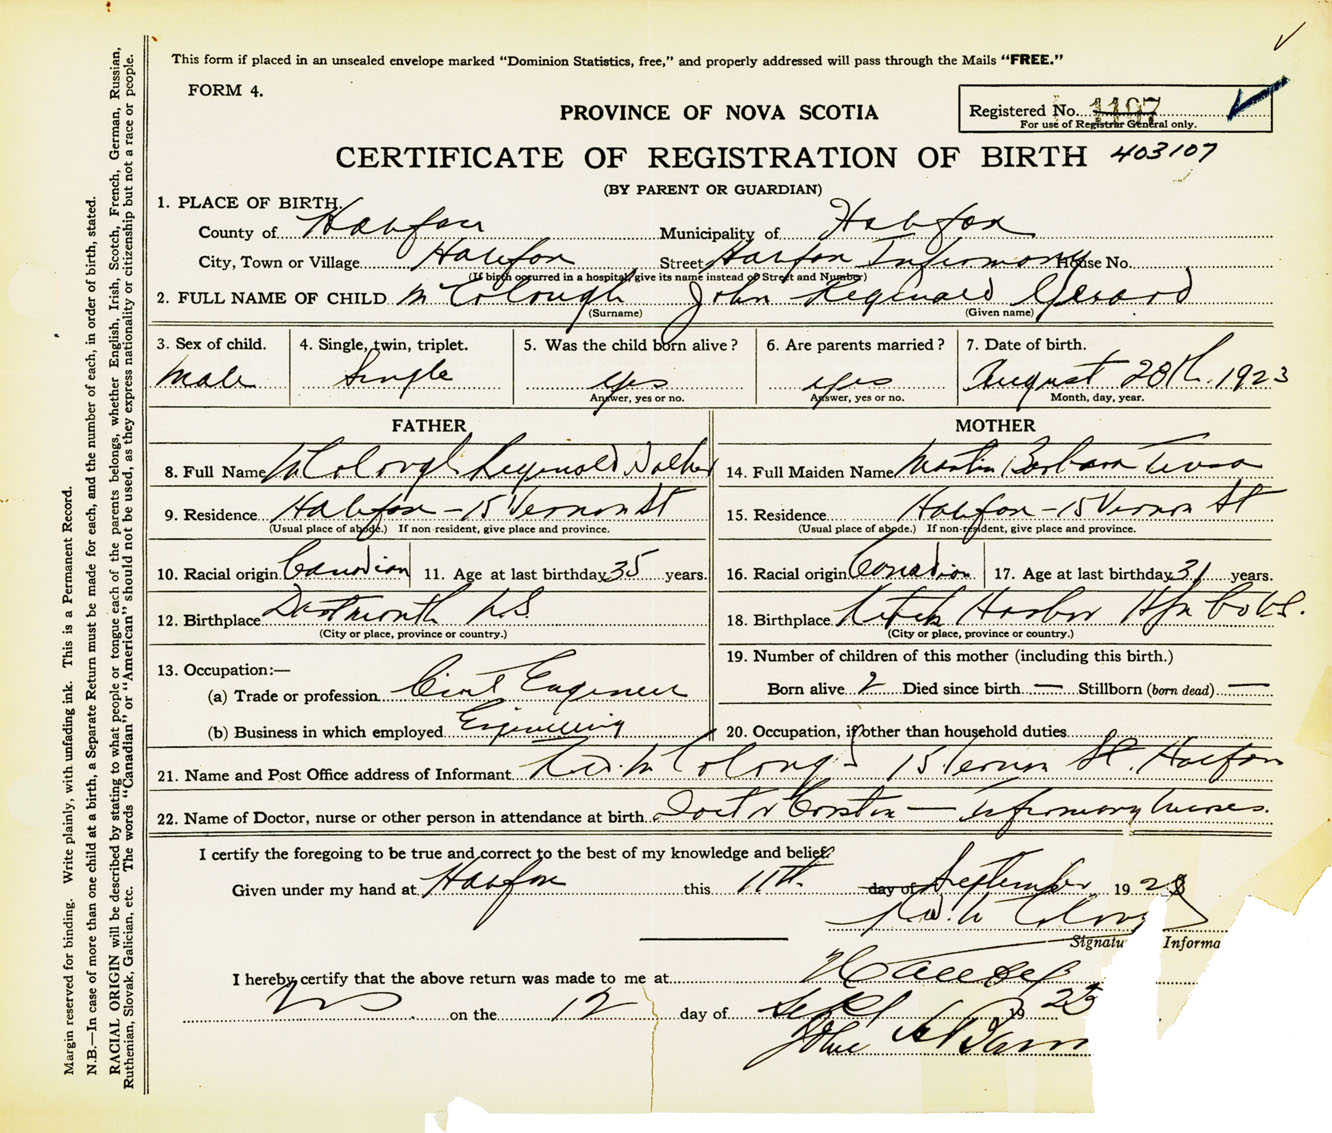 This form if placed in an unsealed envelope marked "Dominion Statistics, free," and properly addressed will pass through the Mails "FREE."
FORM 4.
PROVINCE OF NOVA SCOTIA
Registered No. 1197
For use of Registrar General only.
CERTIFICATE OF REGISTRATION OF BIRTH 403107
(BY PARENT OR GUARDIAN)
1. PLACE OF BIRTH.
County of Halifax Municipality of Halifax
City, Town or Village Halifax Street Halifax Infirmary House No.
(If birth occurred in a hospital, give its name instead of Street and Number)
2. FULL NAME OF CHILD McColough John Reginald Gerard
(Surname) (Given name)
3. Sex of child. 4. Single, twin, triplet. 5. Was the child born alive? 6. Are parents married? 7. Date of birth.
Male Single Yes yes August 28th. 1923
Answer, yes or no. Answer, yes or no. Month, day, year.
FATHER MOTHER
8. Full Name McColough Reginald Walker 14. Full Maiden Name Martin Barbara
9. Residence Halifax - 15 Vernon St 15. Residence Halifax - 15 Vernon St
(Usual place of abode.) If non-resident, give place and province. (Usual place of abode.) If non-resident, give place and province.
10. Racial origin Canadian 11. Age at last birthday 35 years. 16. Racial origin Canadian 17. Age at last birthday 31 years.
12. Birthplace Dartmouth N.S. 18. Birthplace Ketch Harbor Hfx Co N.S.
(City or place, province or country.) (City or place, province or country.)
13. Occupation:— 19. Number of children of this mother (including this birth.)
(a) Trade or profession Civil Engineer Born alive 2 Died since birth — Stillborn (born dead) —
(b) Business in which employed Engineering 20. Occupation, if other than household duties
21. Name and Post Office address of Informant R.W. McColough 15 Vernon St. Halifax
22. Name of Doctor, nurse or other person in attendance at birth. Doctor Corston — Infirmary Nurses.
I certify the foregoing to be true and correct to the best of my knowledge and belief.
Given under my hand at Halifax this 11th. day of September 1923
R.W. McColough
Signatu Informa
I hereby certify that the above return was made to me at Halifax
NS on the 12 day of Sept 1923
John
Margin reserved for binding. Write plainly, with unfading ink. This is a Permanent Record.
N.B.—In case of more than one child at a birth, a Separate Return must be made for each, and the number of each, in order of birth, stated.
RACIAL ORIGIN will be described by stating to what people or tongue each of the parents belongs, whether English, Irish, Scotch, French, German, Russian,
Ruthenian, Slovak, Galician, etc. The words "Canadian" or "American" should not be used, as they express nationality or citizenship but not a race or people.